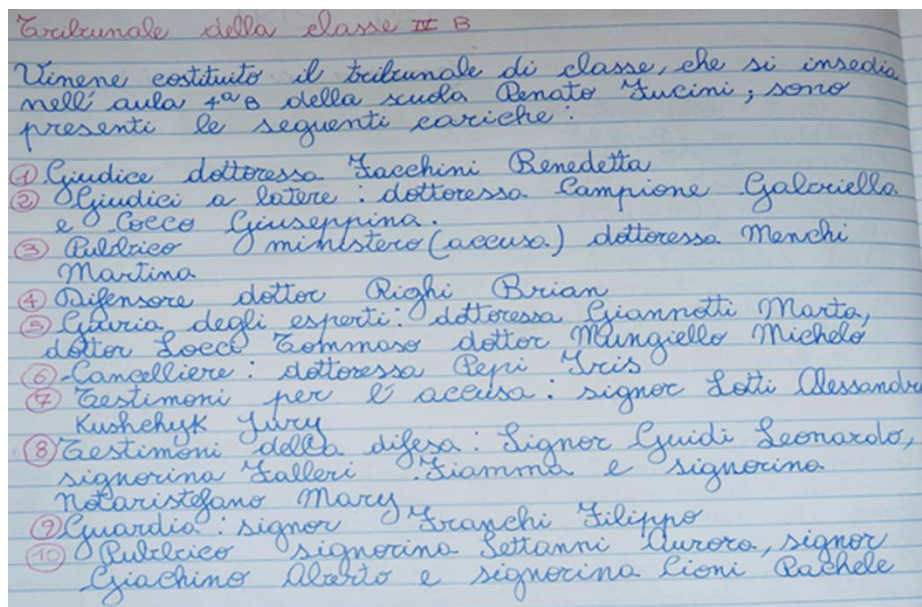 Tribunale della classe IV B
Vimene costituito il tribunale di classe, che si insedia
nell' aula 4ª B della scuola Renato Fucini; sono
presenti le seguenti cariche:
1 Giudice dottoressa Facchini Benedetta
2 Giudici a latere: dottoressa Campione Gabriella
e Cocco Giuseppina.
3 Pubblico ministero (accusa) dottoressa Menchi
Martina
4 Difensore dottor Righi Brian
5 Giuria degli esperti: dottoressa Giannotti Marta,
dottor Locci Tommaso dottor Mungiello Michele
6 Cancelliere: dottoressa Pepi Iris
7 Testimoni per l' accusa: signor Lotti Alessandro
Kushchyk Jury
8 Testimoni della difesa: Signor Guidi Leonardo,
signorina Falleri Fiamma e signorina
Notaristefano Mary
9 Guardia: signor Franchi Filippo
10 Pubblico signorina Settanni Aurora, signor
Giachino Alberto e signorina Cioni Rachele